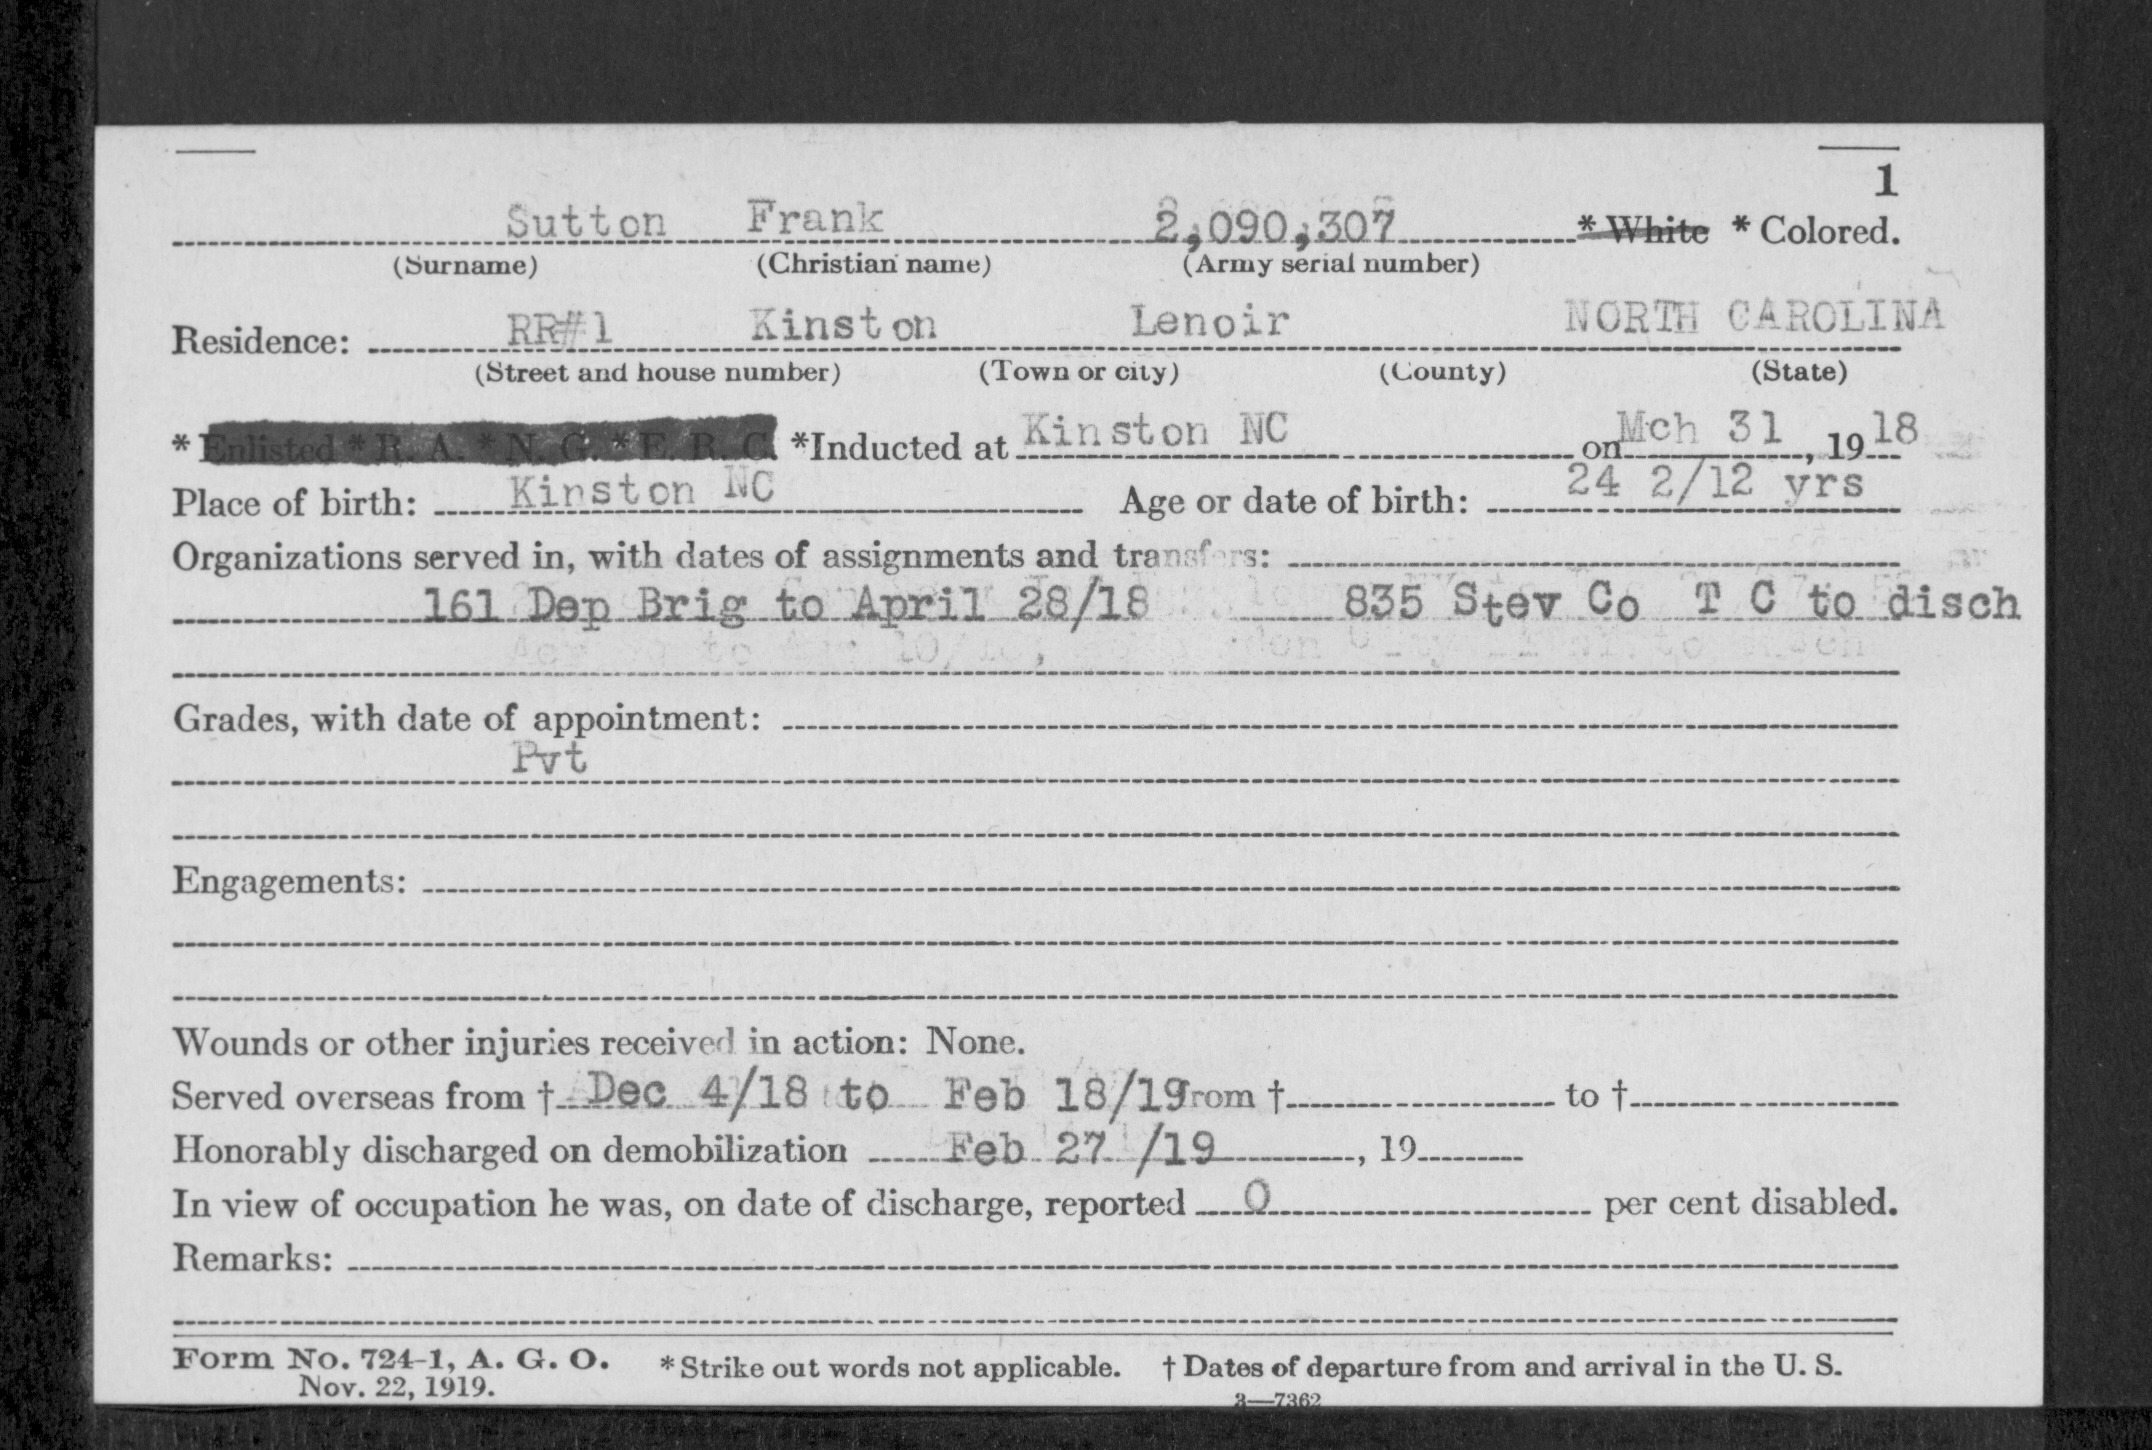 1
Sutton Frank 2,090,307 * White * Colored.
(Surname) (Christian name) (Army serial number)
Residence: RR#1 Kinston Lenoir NORTH CAROLINA
(Street and house number) (Town or city) (County) (State)
* Enlisted * R. A. * N. G. * E. R. C. *Inducted at Kinston NC on Mch 31, 1918
Place of birth: Kinston NC Age or date of birth: 24 2/12 yrs
Organizations served in, with dates of assignments and transfers:
161 Dep Brig to April 28/18 835 Stev Co T C to disch
Grades, with date of appointment:
Pvt
Engagements:
Wounds or other injuries received in action: None.
Served overseas from † Dec 4/18 to Feb 18/19 from † to †
Honorably discharged on demobilization Feb 27 /19, 19
In view of occupation he was, on date of discharge, reported 0 per cent disabled.
Remarks:
Form No. 724-1, A. G. O. * Strike out words not applicable. † Dates of departure from and arrival in the U. S.
Nov. 22, 1919. 3—7362